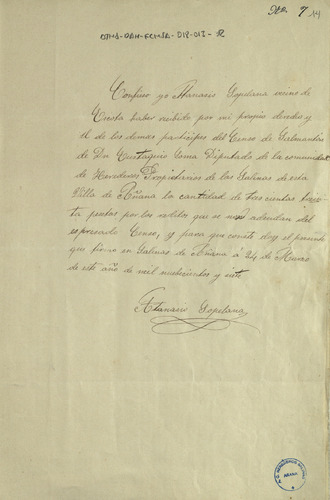 Nº 7 14
Confieso yo Atanasio Sopelana vecino de
Cuesta haber recibido por mi propio derecho y
el de los demas participes del Censo de Salmantón
de Dn Eustaquio Diputado de la comunidad
de Herederos Propietarios de las Salinas de esta
Villa de Añana la cantidad de trescientas treinta
pesetas por los reditos que se adeudan del
espresado Censo, y para que conste doy el presente
que firmo en Salinas de Añana á 24 de Marzo
de este año de mil novecientos y siete
Atanasio Sopelana
AÑANA